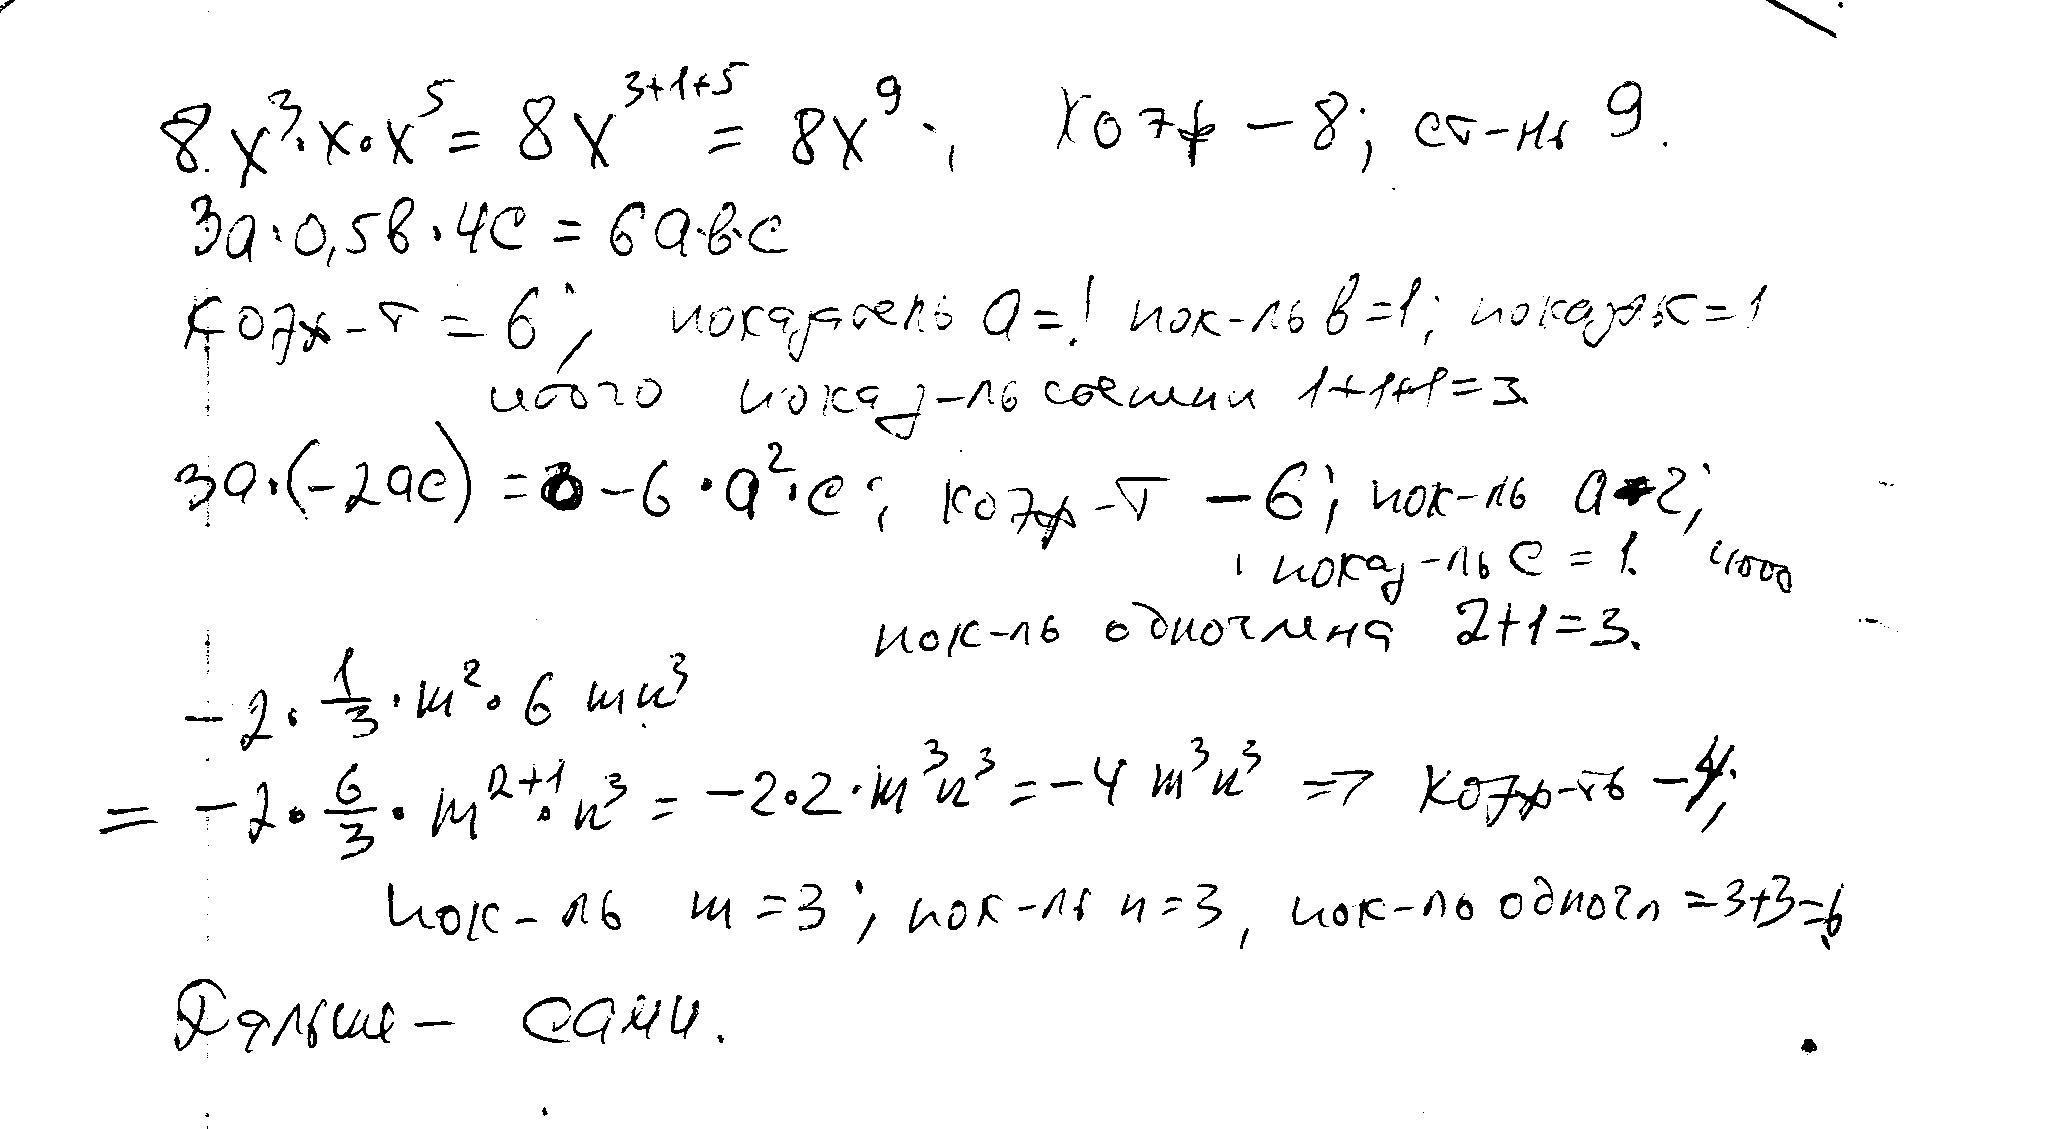 8x³·x·x⁵ = 8x³⁺¹⁺⁵ = 8x⁹; коэф – 8; ст-нь 9.
3a·0,5в·4c = 6a·в·c
Коэф-т = 6; показатель a=1 пок-ль в=1; показ c=1
итого показ-ль степени 1+1+1=3.
3a·(-2ac) = -6·a²·c; коэф-т -6; пок-ль a-2;
показ-ль c = 1.
пок-ль одночлена 2+1=3.
-2·1/3·m²·6 mn³
= -2·6/3·m²⁺¹·n³ = -2·2·m³n³ = -4 m³n³ => коэф-ть -4;
пок-ль m=3; пок-ль n=3, пок-ль одночл =3+3=6
Дальше – сами.